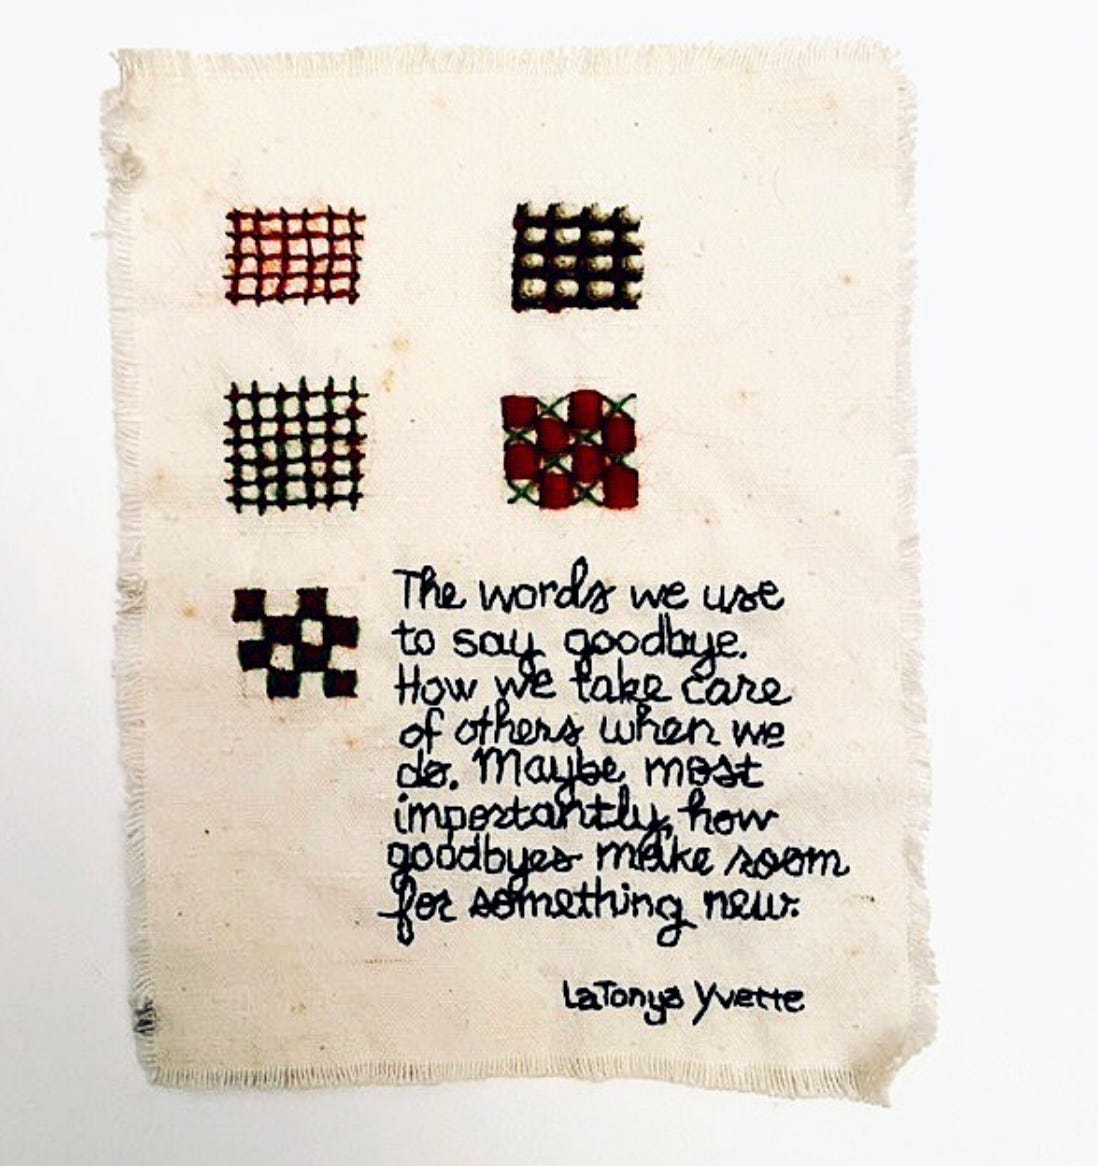 The words we use
to say goodbye.
How we take care
of others when we
do. Maybe most
importantly, how
goodbyes make room
for something new.
LaTonya Yvette